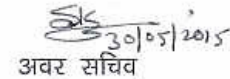 30/05/2015
अवर सचिव